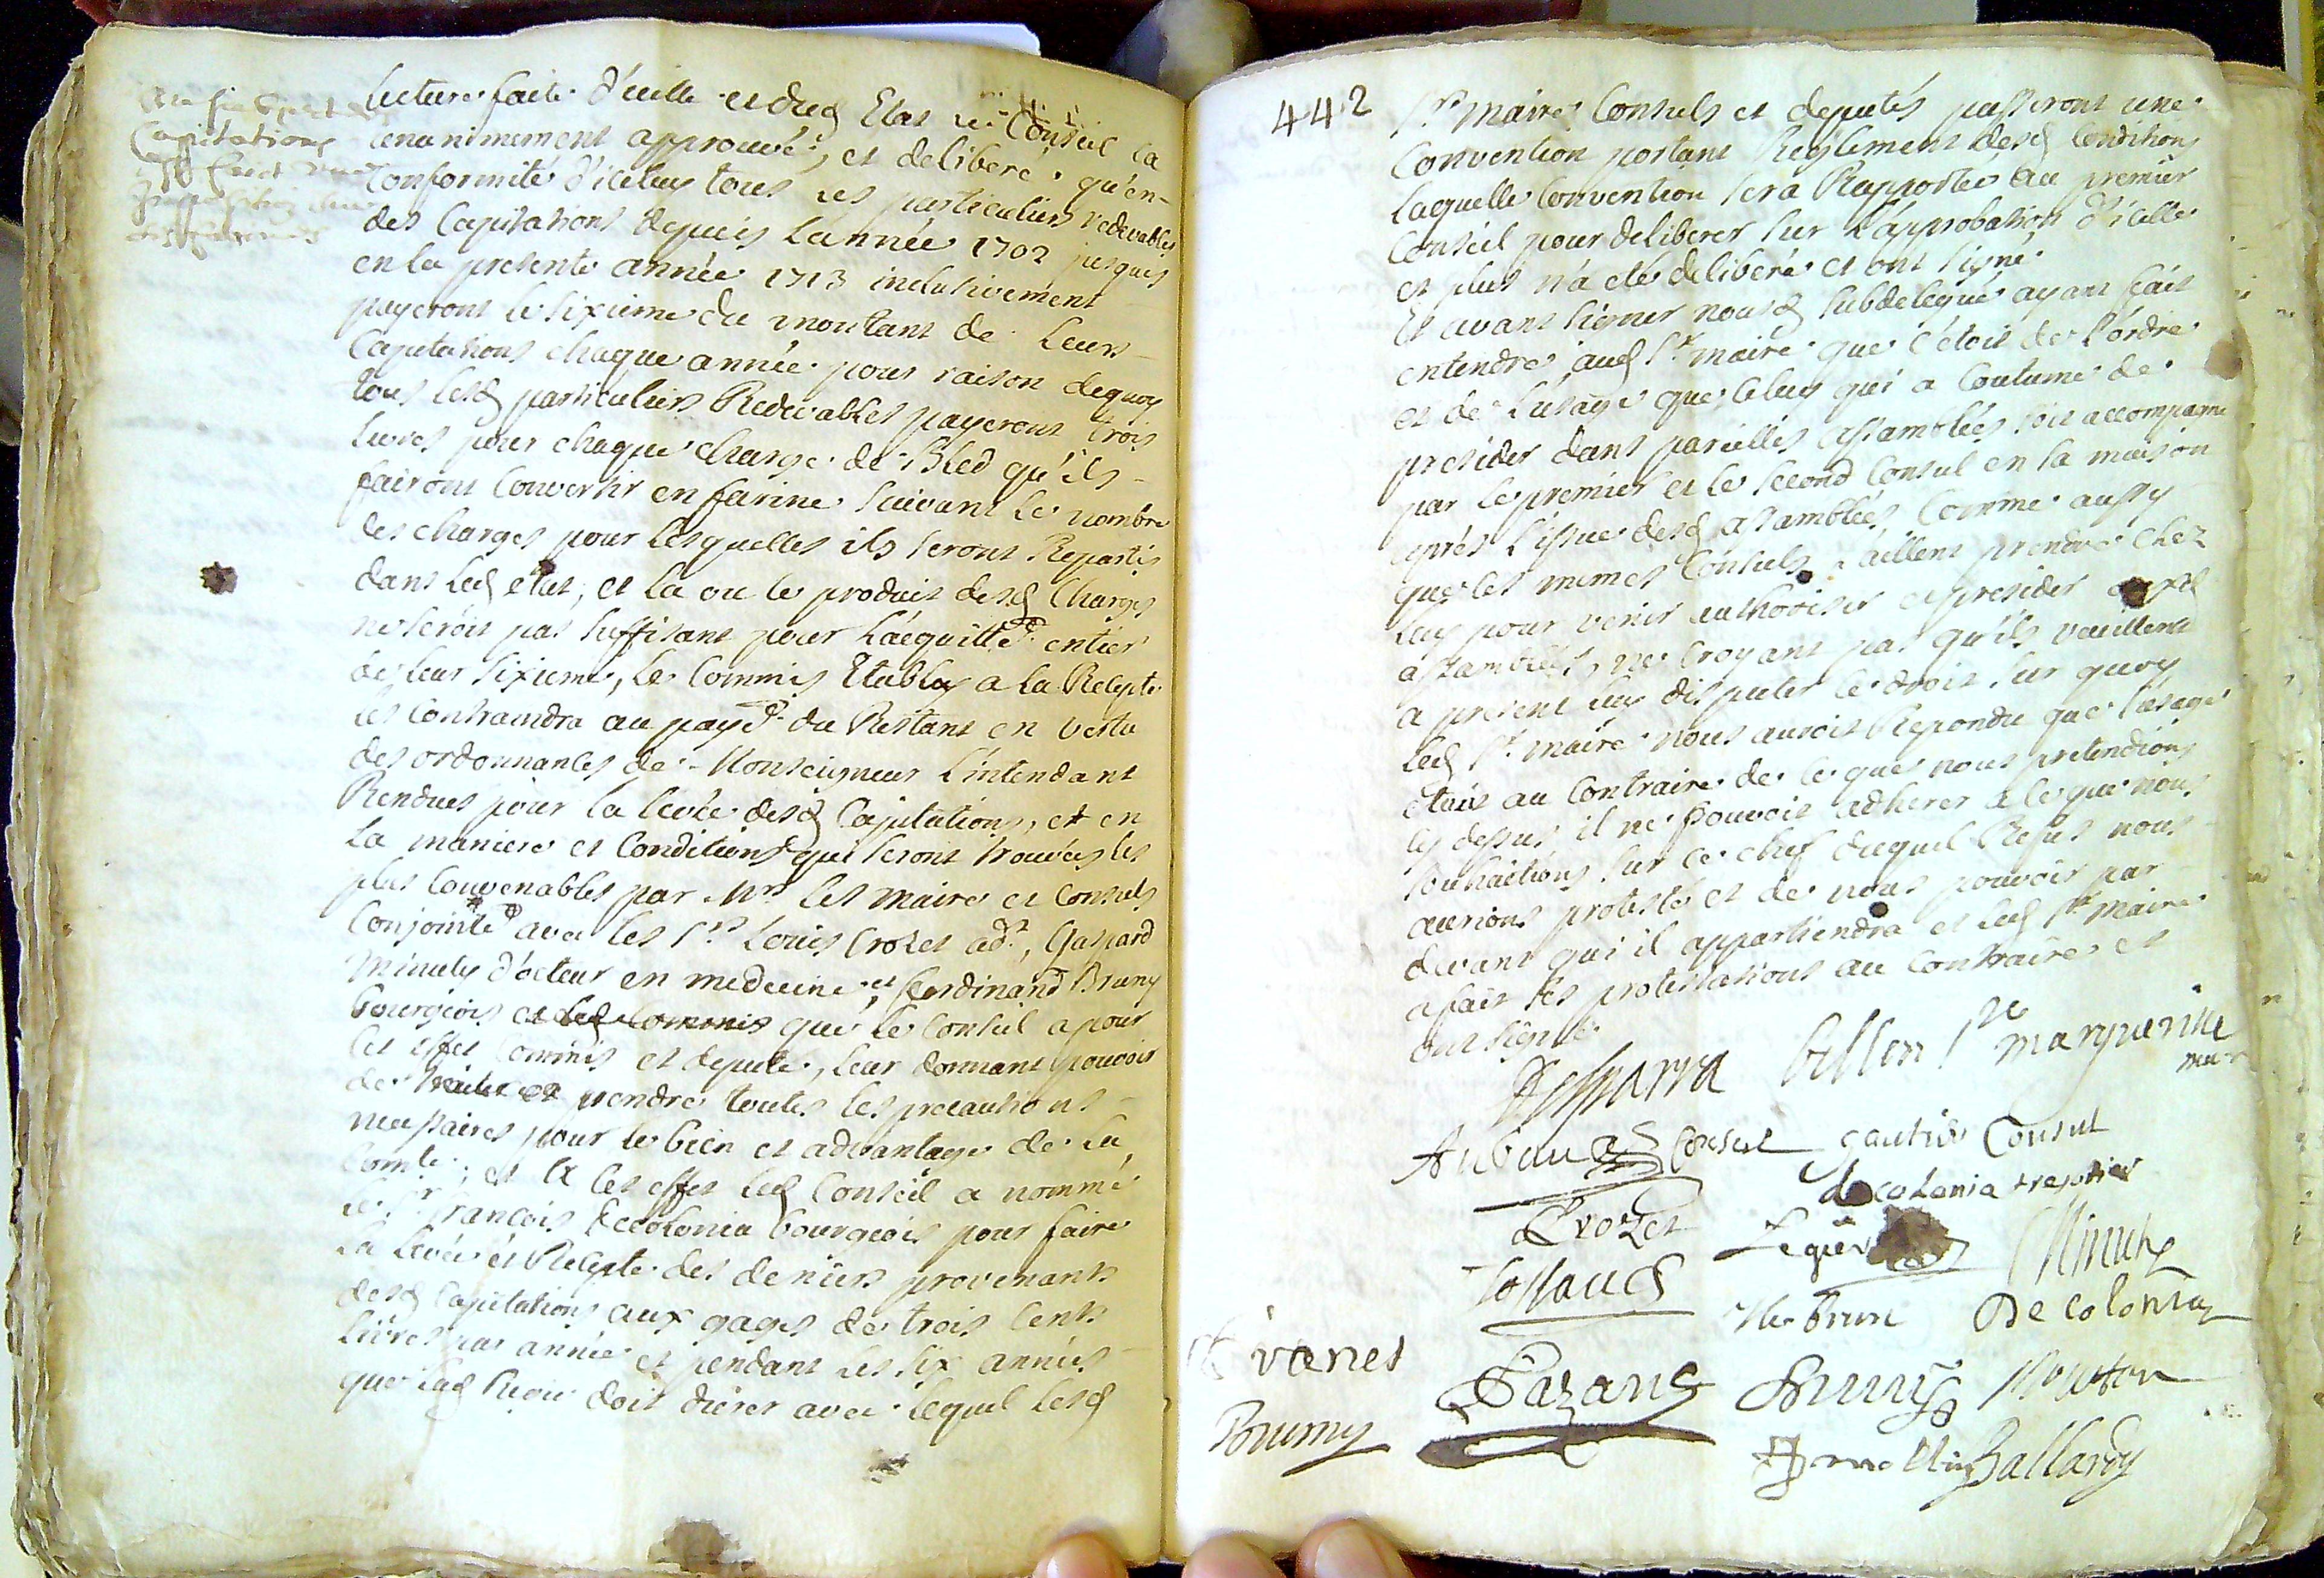 Capitations
Lecture faite d'icelle et dud Etat le Conseil la
unanimement approuvé, et deliberé qu'en
Conformité d'iceluy tous les particuliers redevables
des Capitations depuis Lannée 1702 jusques
en la presente année 1713 inclusivement
payeront le sixieme du montant de Leurs
Capitations chaque année pour raison dequoy
tous lesd particuliers Redevables payeront trois
Livres pour chaque charge de Bled qu'ils
fairont Convertir en farine suivant le nombre
des charges pour lesquelles ils seront Repartis
dans led etat, et la ou le produit desd Charges
ne seroit pas suffisant pour L'acquittemt entier
de leur sixieme, le Commis Etably a la Recepte
les Contraindra au payemt du Restant en vertu
des ordonnances de Monseigneur L'intendant
Rendues pour la levée desd Capitations, et en
la maniere et Conditions qui seront trouvées les
plus Convenables par Mrs les maire et Consuls
Conjointemt avec les Srs Louis Crozet adt, Gaspard
Minuty d'octeur en medecine, et ferdinand Bruny
bourgeois et led Commis que le Conseil a pour
cet effet Commis et deputé, leur donnant pouvoir
de traiter et prendre toutes les precautions
necessaires pour le bien et advantage de la
Comté, et A cet effet led Conseil a nommé
le Sr francois decolonia bourgeois pour faire
la levée et Recepte des deniers provenants
desd Capitations aux gages de trois Cents
livres par année et pendant les six années
que lad doit durer avec lequel lesd
442
Srs maire Consuls et deputés passeront une
Convention portant Reglement desd Conditions
Laquelle Convention sera Rapportée au premier
Conseil pour deliberer sur L'approbation d'icelle
et plus n'a eté deliberé et ont signé.
Et avant signer nousd subdelegué ayant fait
entendre aud Sr maire que c'étoit de l'ordre
et de L'usage que Celuy qui a Coutume de
presider dans pareilles assamblées soit accompagné
par le premier et le second Consul en sa maison
aprés L'issue desd assamblées, Comme aussy
que les memes Consuls aillent prendre chez
Luy pour venir authoriser et presider auxd
assamblées, ne Croyant pas qu'ils veuillent
a present luy disputer ce droit sur quoy
Led Sr maire nous auroit Repondu que l'usage
étant au Contraire de ce que nous pretendions
cy dessus, il ne pouvoit adherer a ce que nous
souhaitions sur ce chef duquel Refus nous
aurions protesté et de nous pouvoir par
devant qui il appartiendra et led Sr maire
a fait ses protestations au Contraire et
ont signé
Bellon Ste marguerite
Aubau Consul gautier Consul
decolonia tresorier
Crozet
Minuty
Brun De Colonia
Bruny Mouton
Ballardy